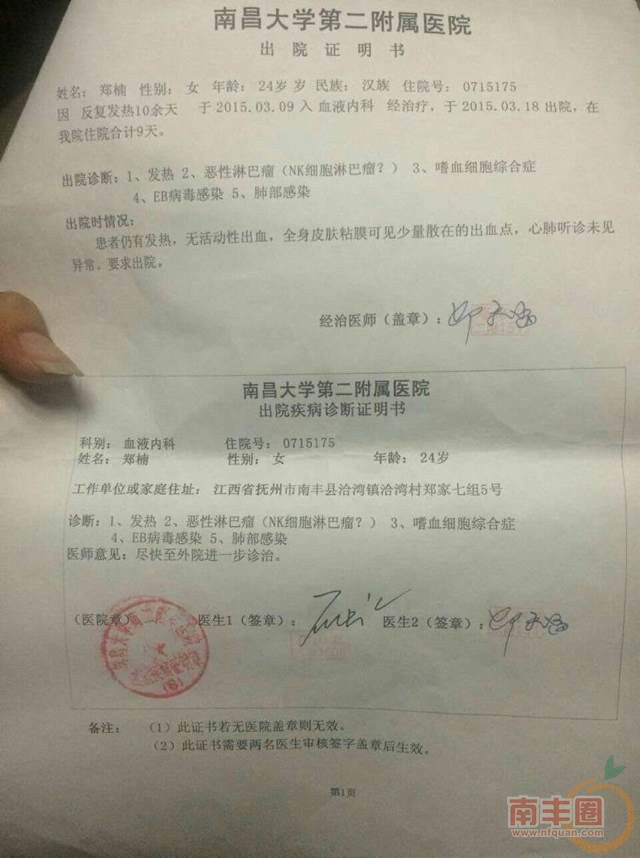 南昌大学第二附属医院
出 院 证 明 书
姓名：郑楠 性别：女 年龄：24岁 岁 民族：汉族 住院号：0715175
因 反复发热10余天 于 2015.03.09 入 血液内科 经治疗，于 2015.03.18 出院，在
我院住院合计9天。
出院诊断：1、发热 2、恶性淋巴瘤（NK细胞淋巴瘤？）3、嗜血细胞综合症
4、EB病毒感染 5、肺部感染
出院时情况：
患者仍有发热，无活动性出血，全身皮肤粘膜可见少量散在的出血点，心肺听诊未见
异常，要求出院。
经治医师（盖章）：
南昌大学第二附属医院
出院疾病诊断证明书
科别：血液内科 住院号：0715175
姓名：郑楠 性别：女 年龄：24岁
工作单位或家庭住址：江西省抚州市南丰县洽湾镇洽湾村郑家七组5号
诊断：1、发热 2、恶性淋巴瘤（NK细胞淋巴瘤？）3、嗜血细胞综合症
4、EB病毒感染 5、肺部感染
医师意见：尽快至外院进一步诊治。
（医院章） 医生1（签章）： 医生2（签章）：
备注：（1）此证书若无医院盖章则无效。
（2）此证书需要两名医生审核签字盖章后生效。
第1页
南丰圈
www.nfquan.com